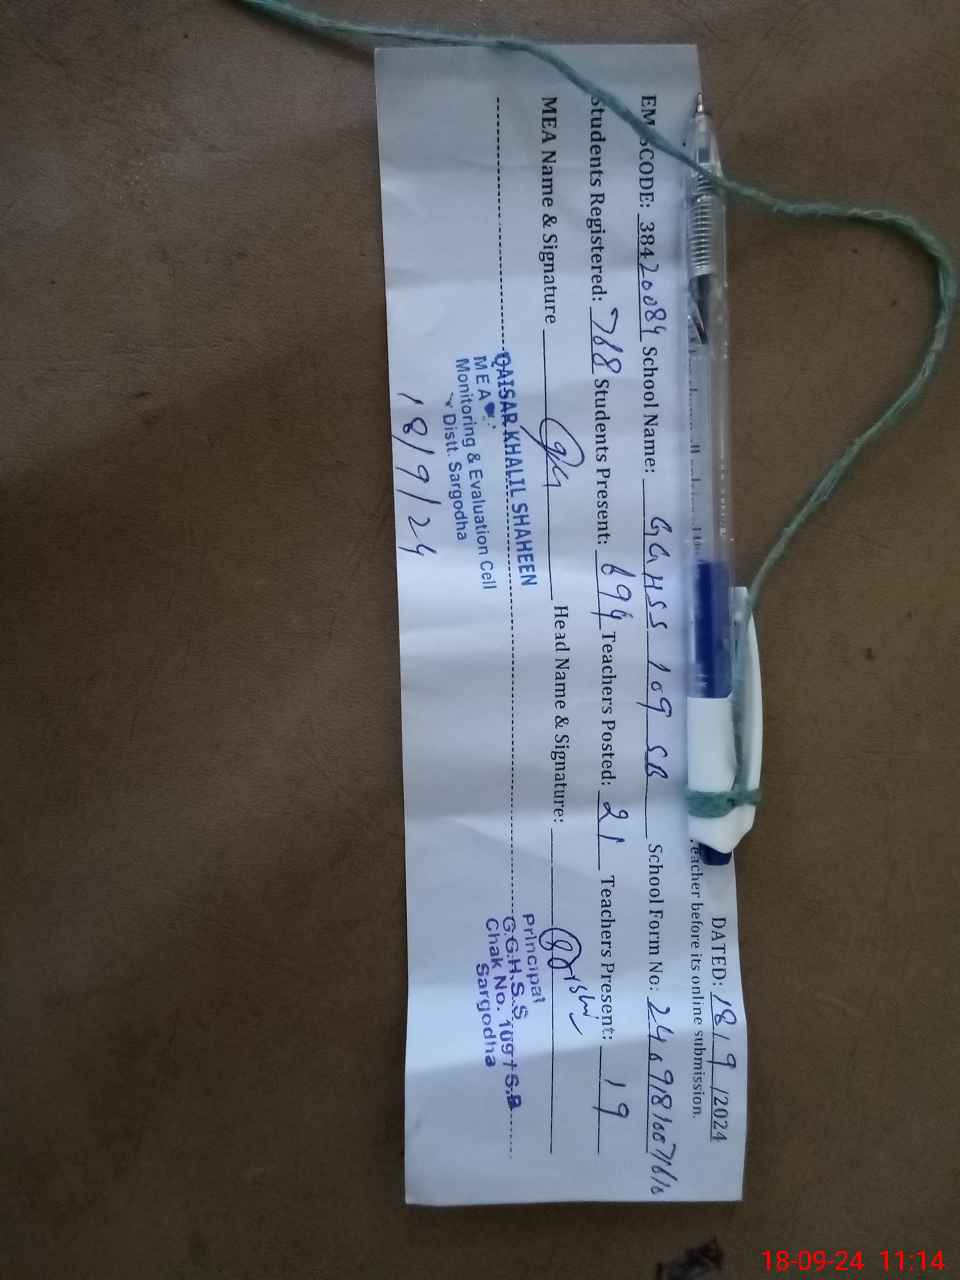 DATED: 18/9/2024
eacher before its online submission.
EM SCODE: 38420084 School Name: GGHSS 109 SB School Form No:
Students Registered: 768 Students Present: 694 Teachers Posted: 21 Teachers Present: 19
MEA Name & Signature Head Name & Signature:
QAISAR KHALIL SHAHEEN
MEA
Monitoring & Evaluation Cell
Distt. Sargodha
18/9/24
Principal
G.G.H.S.S
Chak No. 109/S.B
Sargodha
18-09-24 11:14